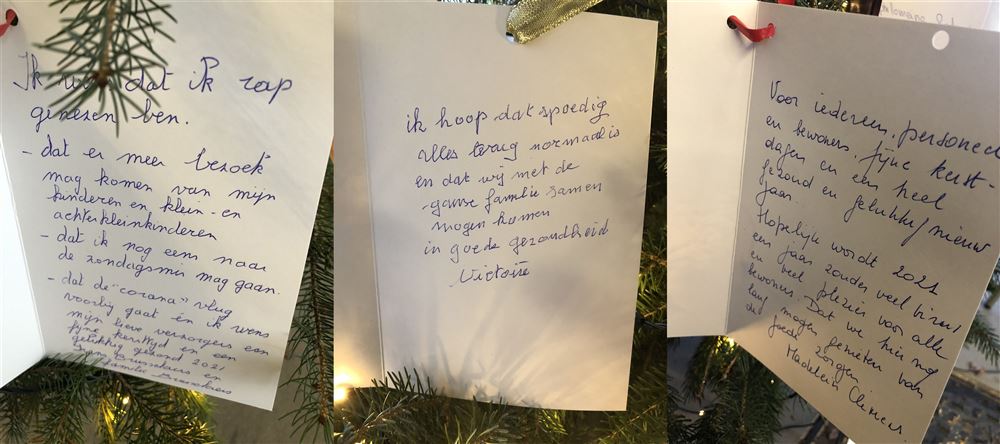 Ik dat ik rap
genezen ben.
- dat er meer bezoek
mag komen van mijn
kinderen en klein- en
achterkleinkinderen
- dat ik nog eens naar
de zondagsmis mag gaan.
- dat de "corona" vlug
voorbij gaat en ik wens
mijn lieve verzorgers een
fijne kersttijd en een
gelukkig gezond 2021
en
familie
ik hoop dat spoedig
alles terug normaal is
en dat wij met de
ganse familie samen
mogen komen
in goede gezondheid
Victoire
Voor iedereen, personeel
en bewoners, fijne kerst-
dagen en een heel
gezond en gelukkig nieuw
jaar.
Hopelijk wordt 2021
een jaar zonder veel
en veel plezier voor alle
bewoners. Dat we hier nog
lang mogen genieten van
de goede zorgen.
Madeleine